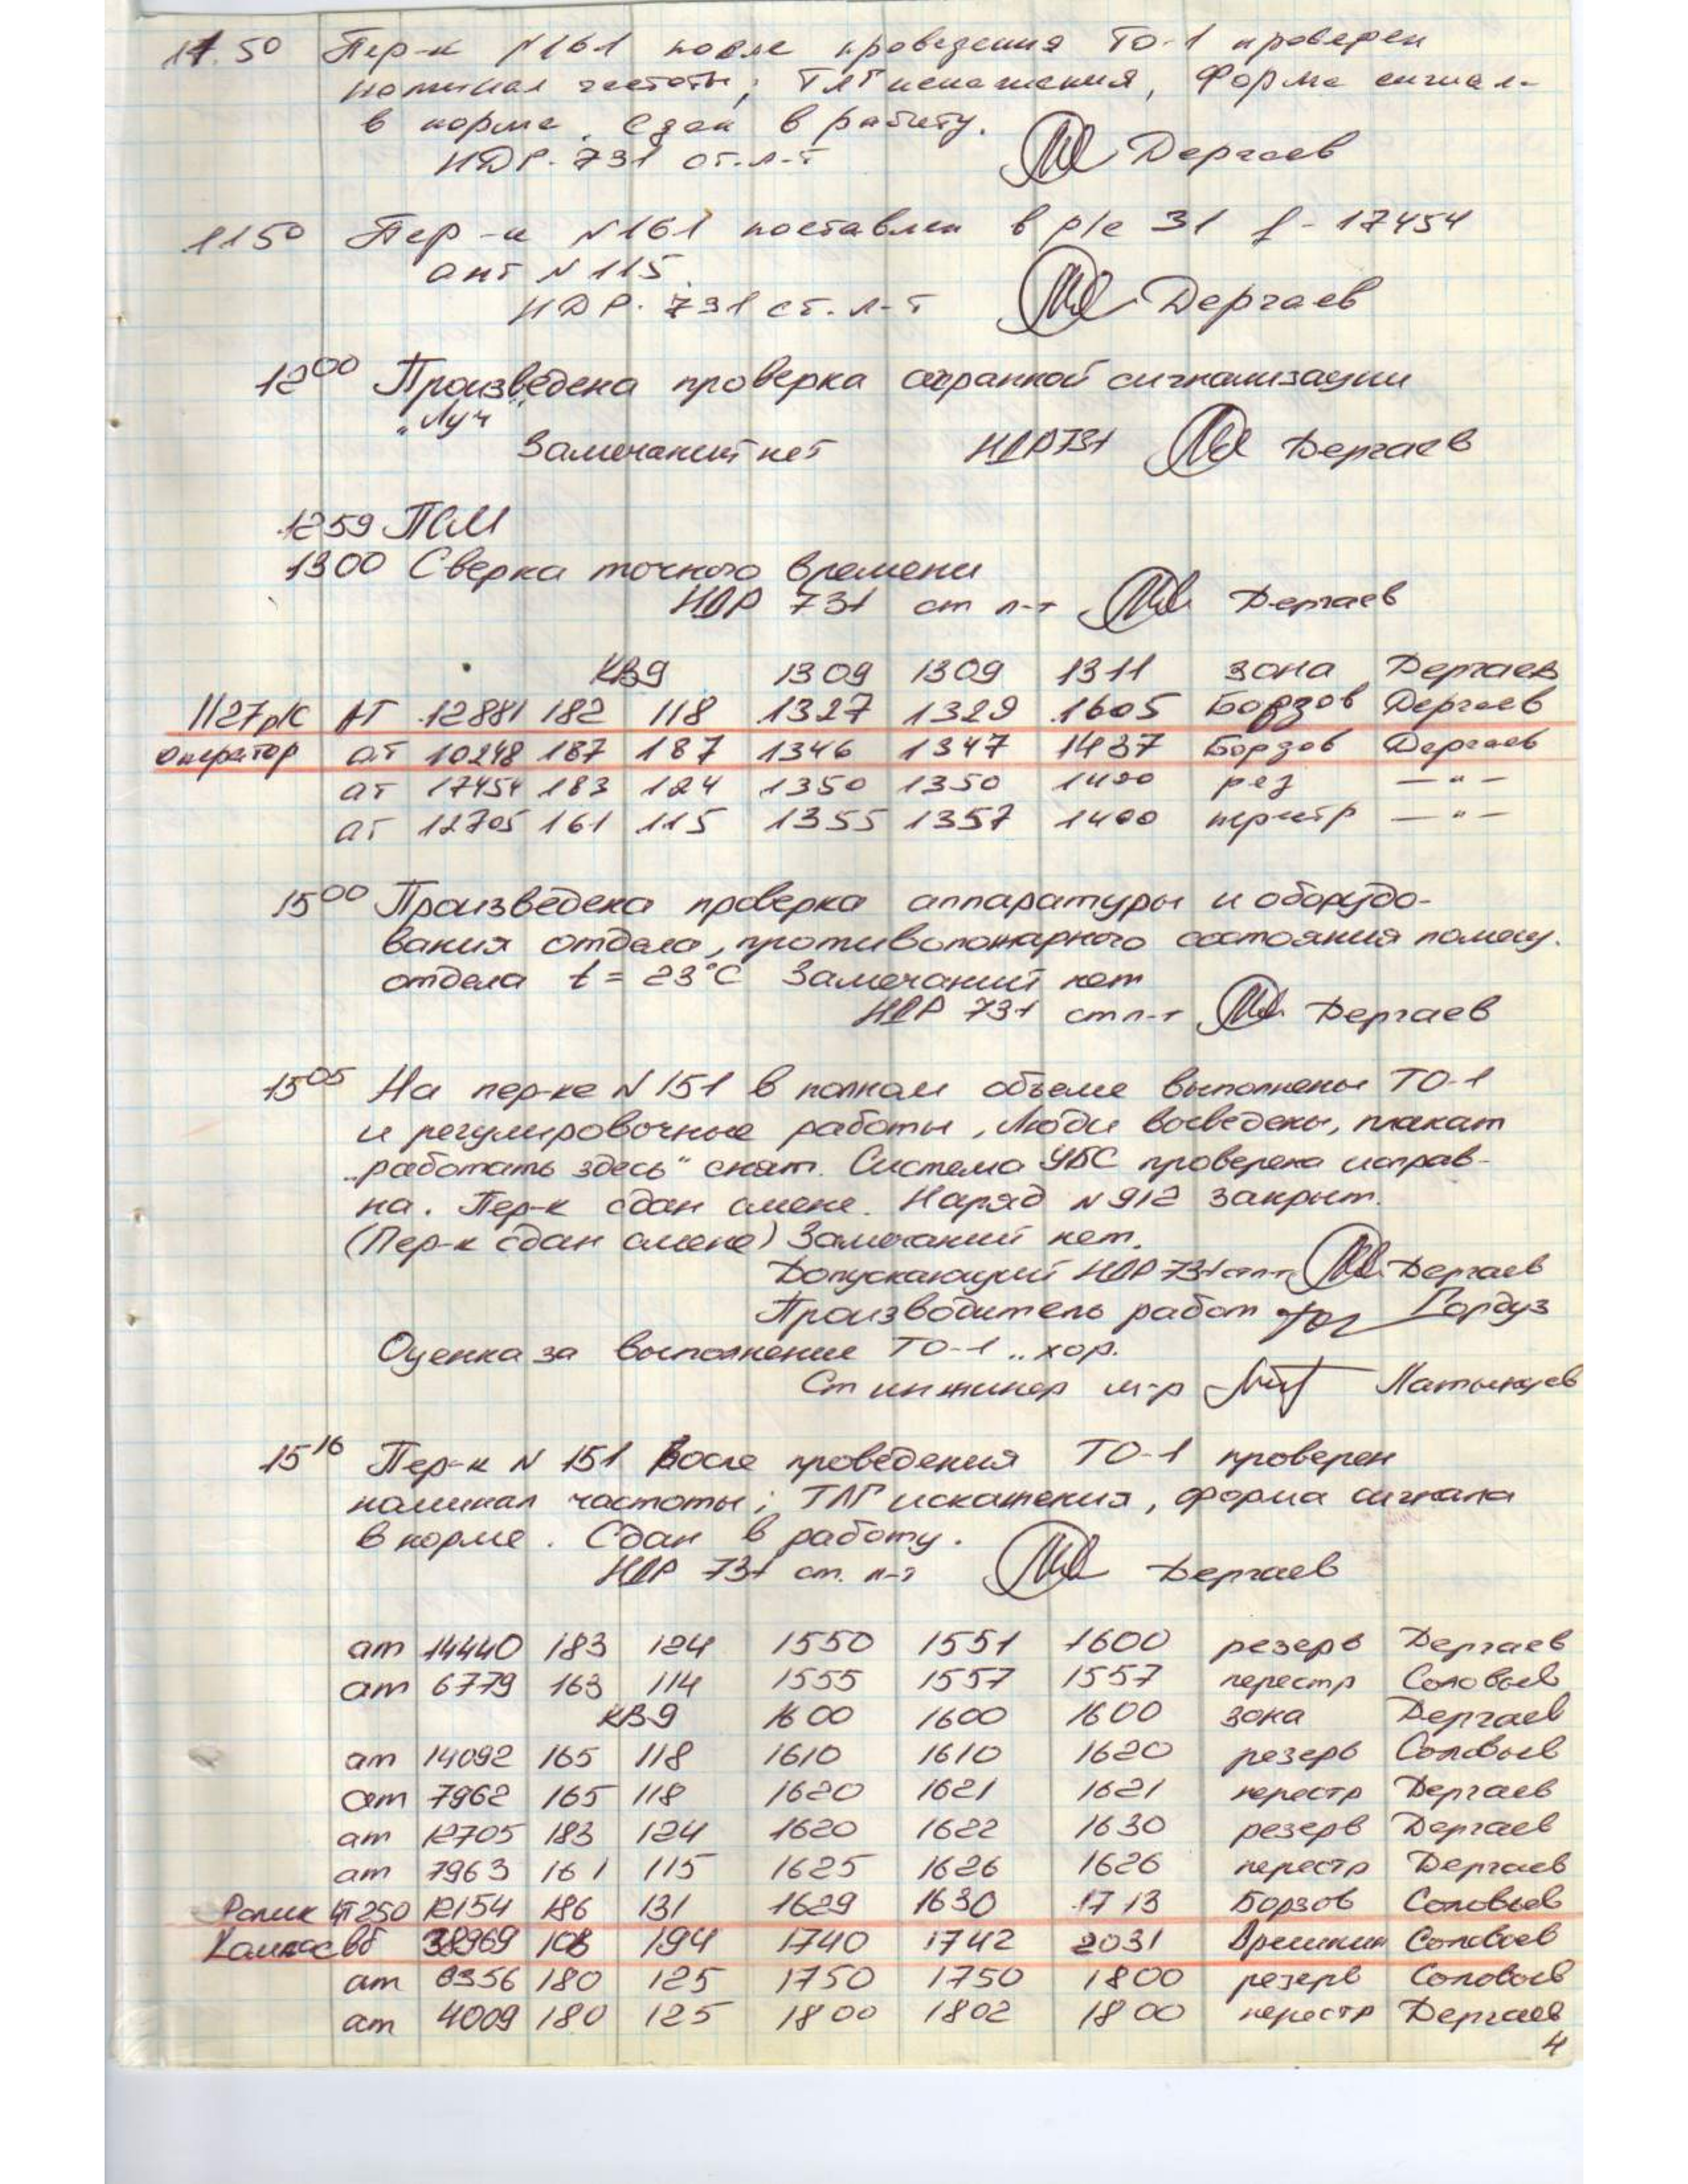 11.50 Пер-к №161 после проведения ТО-1 проверен
номинал частоты; ТЛГ искажения, Форма сигнал-
в норме. Сдан в работу.
НДР. 731 ст. л-т Дергаев
1150 Пер-к №161 поставлен в р/с 31 f - 17454
ант №115.
НДР. 731 ст. л-т Дергаев
12⁰⁰ Произведена проверка охранной сигнализации
„Луч"
Замечаний нет НДР731 Дергаев
1259 ПСМ
1300 Сверка точного времени
НДР 731 ст л-т Дергаев
КВ9 1309 1309 1311 зона Дергаев
1127р/с АТ 12881 182 118 1327 1329 1605 Борзов Дергаев
Оператор ат 10248 187 187 1346 1347 1437 Борзов Дергаев
ат 17454 183 124 1350 1350 1400 рез — " —
ат 12705 161 115 1355 1357 1400 — " —
15⁰⁰ Произведена проверка аппаратуры и оборудо-
вания отдела, противопожарного состояния помещ.
отдела t = 23°C Замечаний нет
НДР 731 ст л-т Дергаев
15⁰⁵ На пер-ке №151 в полном объеме выполнены ТО-1
и регулировочные работы, Люди выведены, плакат
„работать здесь" снят. Система УБС проверена исправ-
на. Пер-к сдан смене. Наряд №912 закрыт.
(Пер-к сдан смене) Замечаний нет.
Допускающий НДР 731 ст л-т Дергаев
Производитель работ Гордуз
Оценка за выполнение ТО-1 „хор.
Ст инжинер м-р
15¹⁶ Пер-к N 151 После проведения ТО-1 проверен
номинал частоты; ТЛГ искажения, форма сигнала
в норме. Сдан в работу.
НДР 731 ст. л-т Дергаев
ат 14440 183 124 1550 1551 1600 резерв Дергаев
ат 6779 163 114 1555 1557 1557 перестр Соловьев
КВ9 1600 1600 1600 зона Дергаев
ат 14092 165 118 1610 1610 1620 резерв Соловьев
ат 7962 165 118 1620 1621 1621 перестр Дергаев
ат 12705 183 124 1620 1622 1630 резерв Дергаев
ат 7963 161 115 1625 1626 1626 перестр Дергаев
Ролик ЧТ250 12154 186 131 1629 1630 1713 Борзов Соловьев
Кампас вб 38969 108 194 1740 1742 2031 Соловьев
ат 6356 180 125 1750 1750 1800 резерв Соловьев
ат 4009 180 125 1800 1802 1800 перестр Дергаев
4